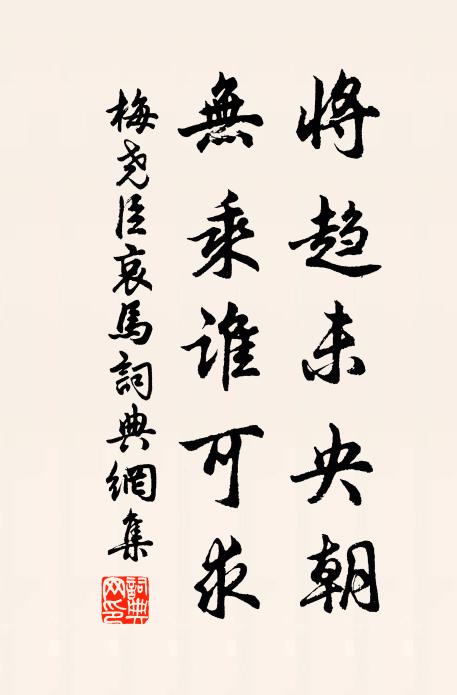 将趋未央朝
無乘誰可求
梅尧臣哀馬詞典網集
詞典网印